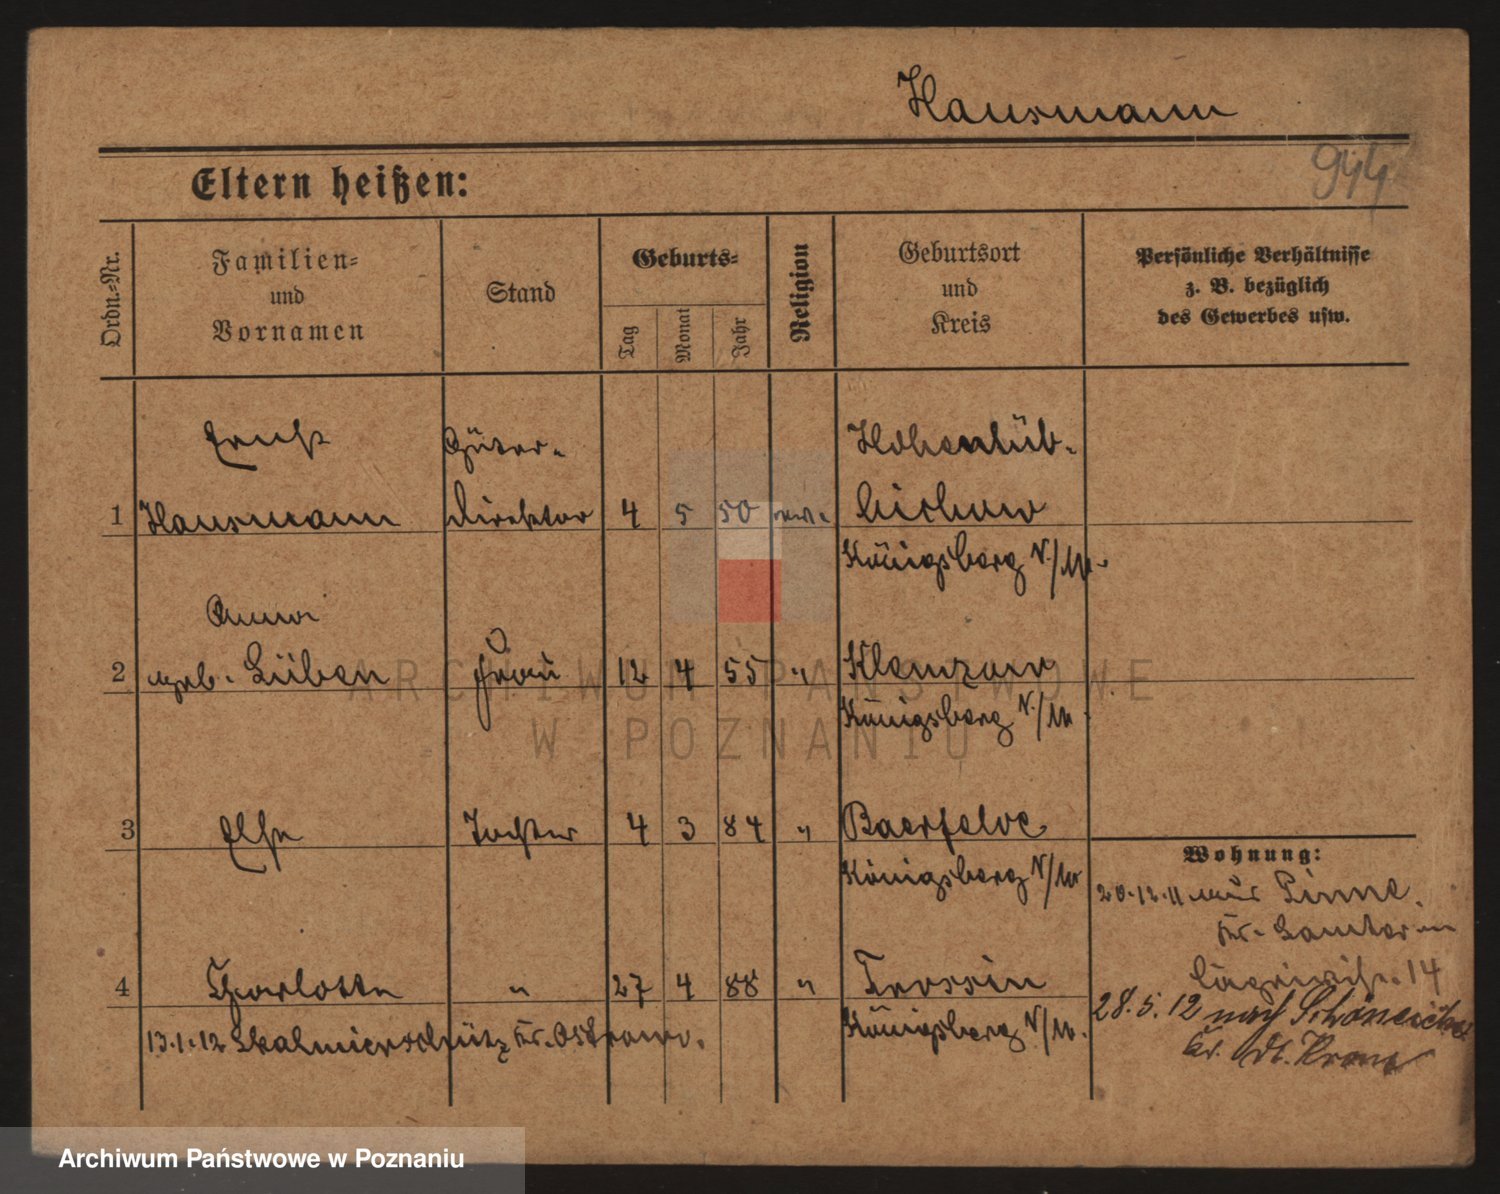 Hausmann
944
Eltern heißen:
Ordn.-Nr.
Familien-
und
Vornamen
Stand
Geburts-
Tag
Monat
Jahr
Religion
Geburtsort
und
Kreis
Persönliche Verhältnisse
z. B. bezüglich
des Gewerbes usw.
Ernst Güter- Hohenlüb-
1 Hausmann direktor 4 5 50 ev. bichow
Königsberg N./M.
Anna
2 geb. Lüben Frau 12 4 55 " Klemzow
Königsberg N./M.
3 Else Tochter 4 3 84 " Baerfelde
Königsberg N/M
Wohnung:
20.12.11 aus Pinne,
Kr. Samter in
14
4 Charlotte " 27 4 88 " Trossin
Königsberg N/M.
28.5.12 nach Schöneiche
Kr. Dt. Krone
13.1.12 Skalmierschütz Kr. Ostrowo.
ARCHIWUM PAŃSTWOWE
W POZNANIU
Archiwum Państwowe w Poznaniu